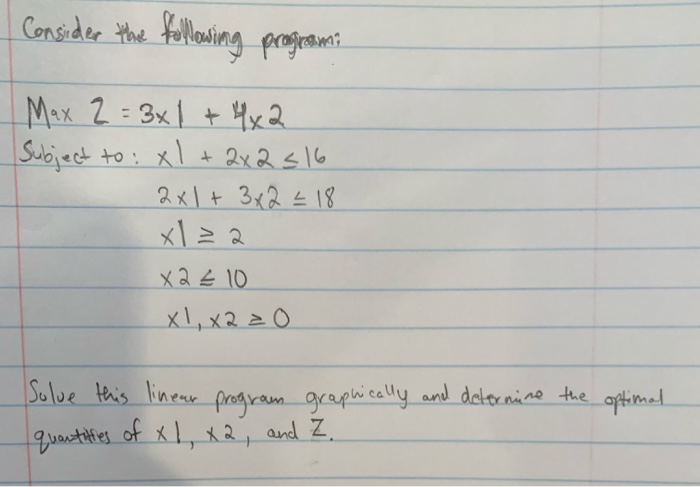 Consider the following program:
Max Z = 3x1 + 4x2
Subject to: x1 + 2x2 ≤ 16
2x1 + 3x2 ≤ 18
x1 ≥ 2
x2 ≤ 10
x1, x2 ≥ 0
Solve this linear program graphically and determine the optimal
quantities of x1, x2, and Z.